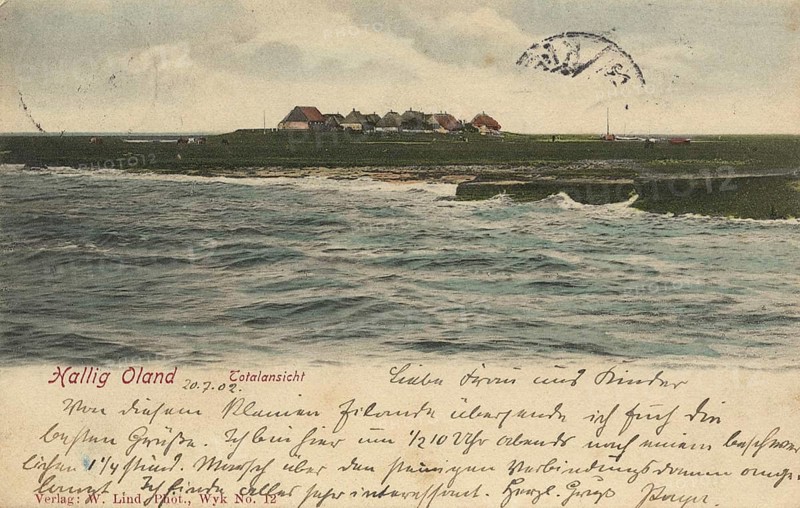 Hallig Oland
Totalansicht
20.7.02.
Liebe Frau und Kinder
Von diesem kleinen Eilande übersende ich Euch die
besten Grüße. Ich bin hier um ½10 Uhr abends nach einem beschwer
lichen 1¼ stünd. Marsch über den steinigen Verbindungsdamm ange-
langt. Ich finde alles sehr interessant. Herzl. Gruß
Verlag: W. Lind, Phot., Wyk No. 12
PHOTO12